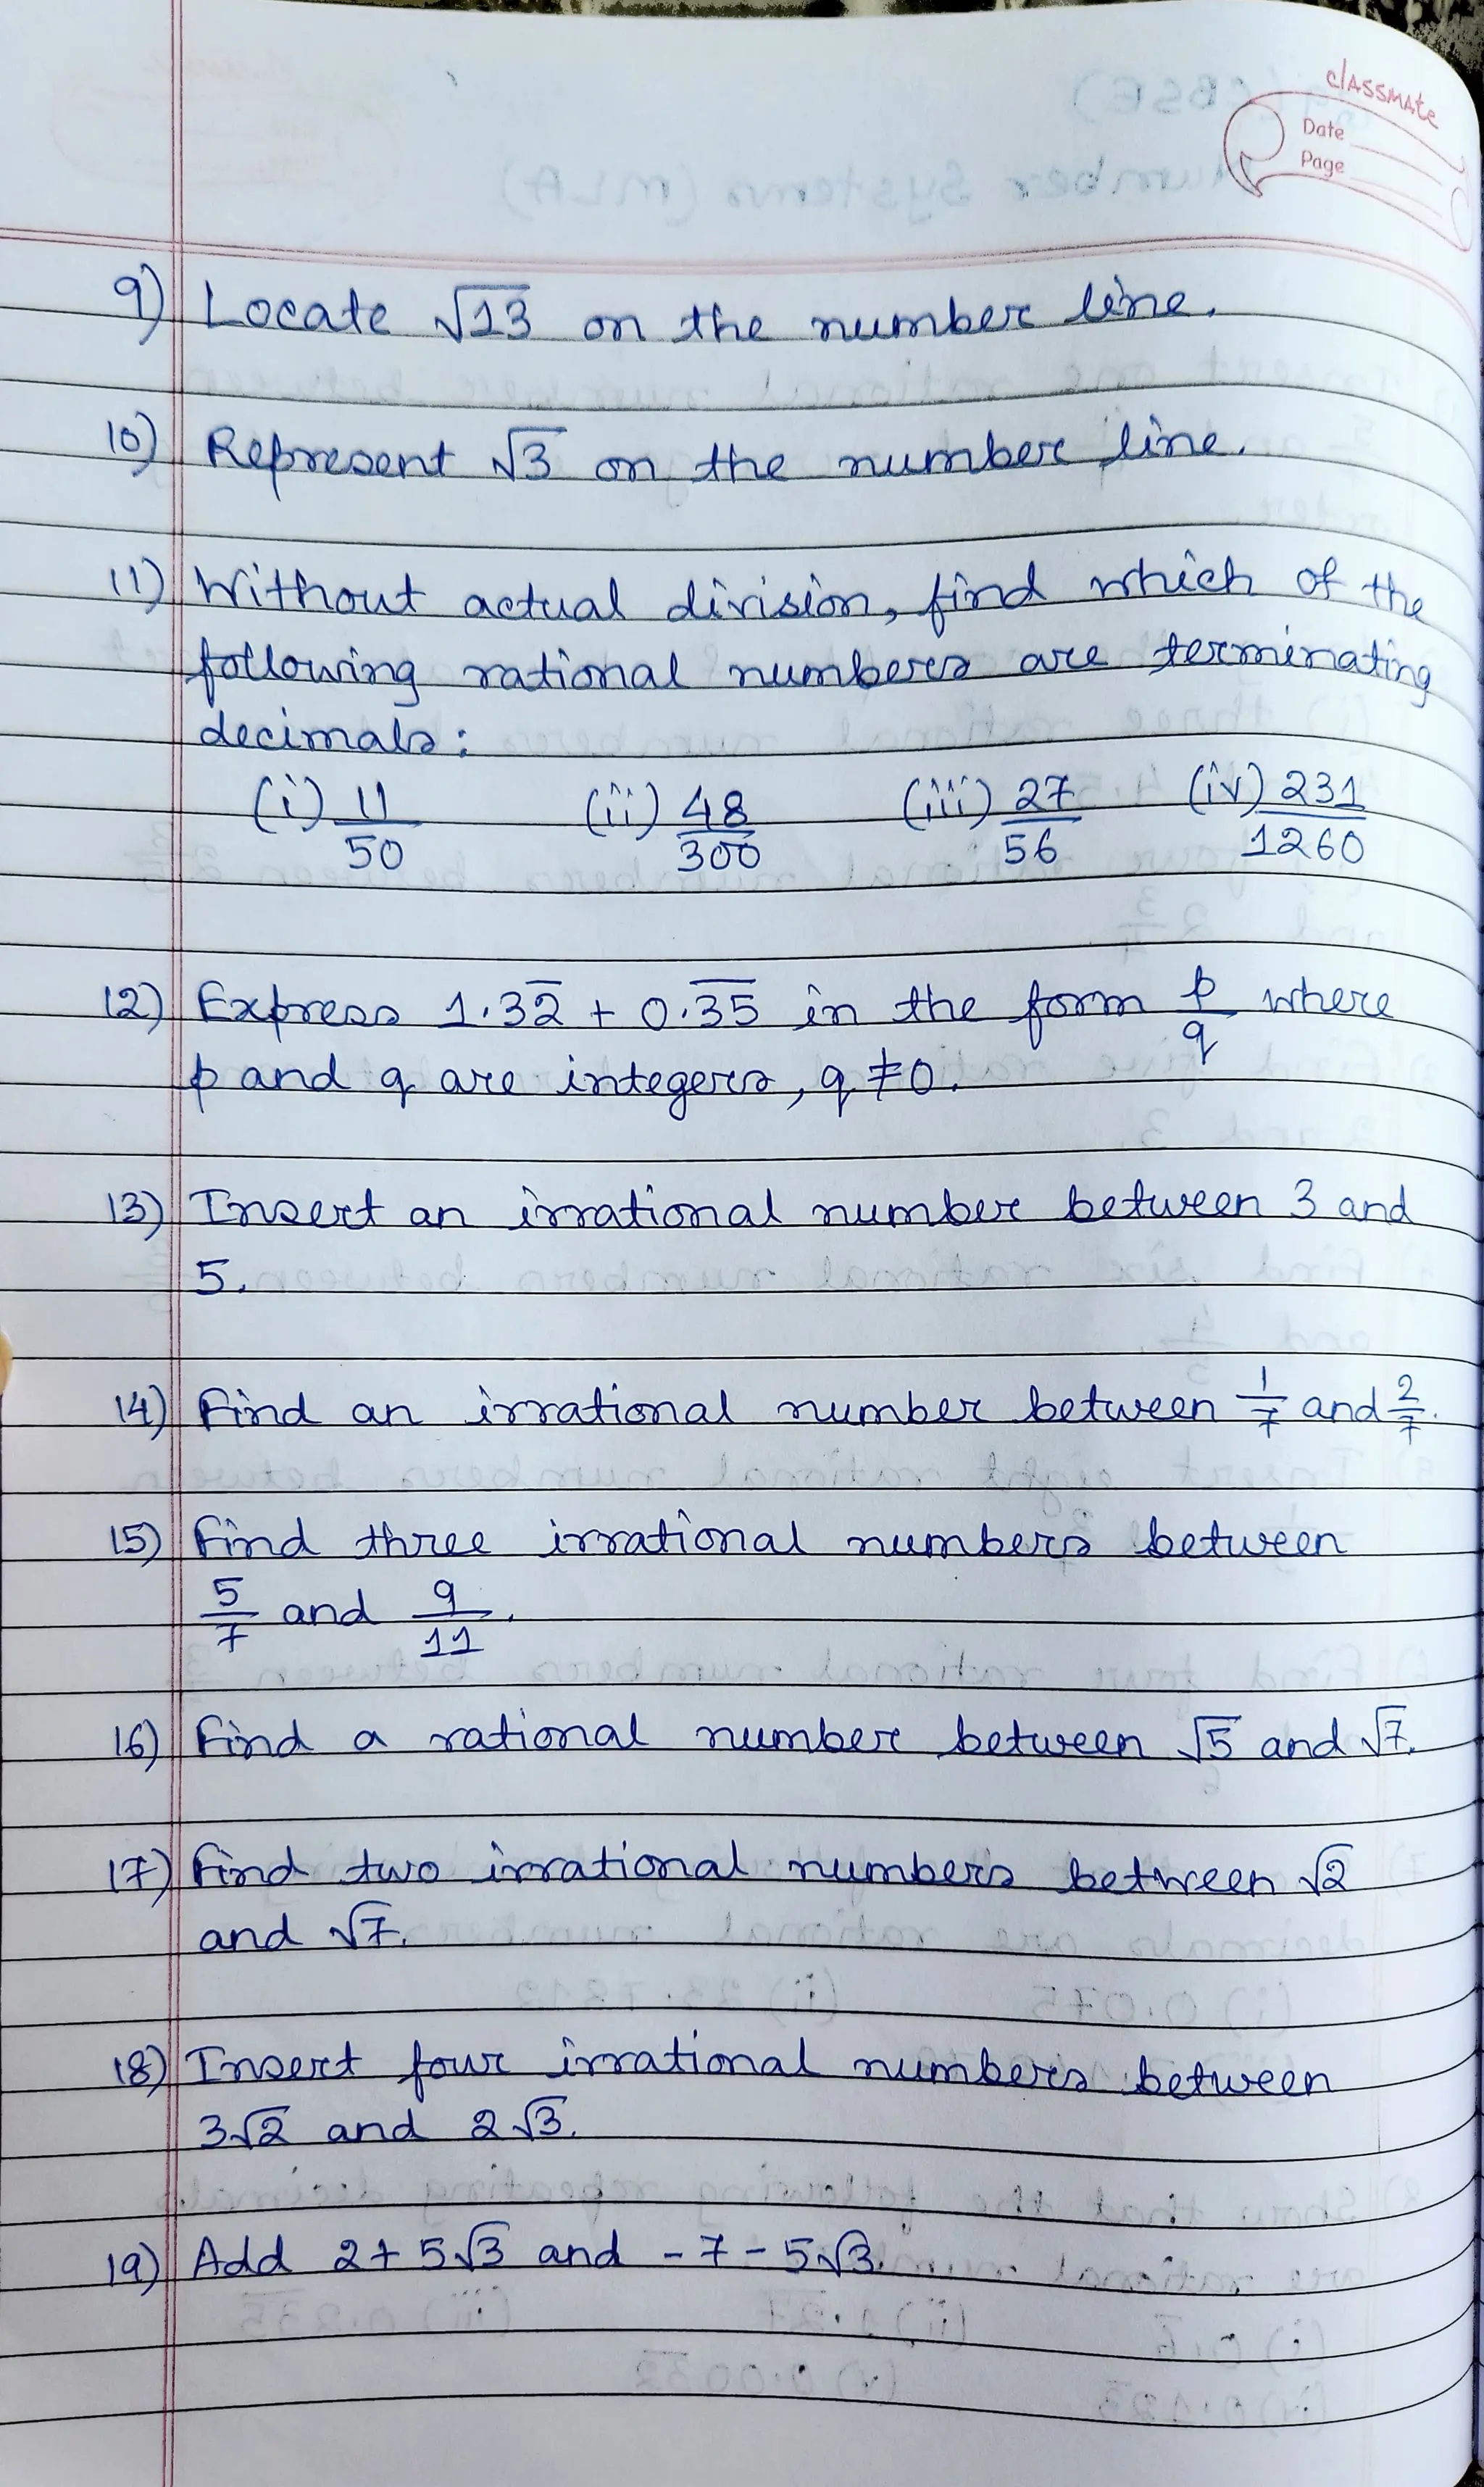 classmate
Date
Page
9) Locate √13 on the number line.
10) Represent √3 on the number line.
11) Without actual division, find which of the
following rational numbers are terminating
decimals:
(i) 11/50 (ii) 48/300 (iii) 27/56 (iv) 231/1260
12) Express 1.32̅ + 0.3̅5̅ in the form p/q where
p and q are integers, q ≠ 0.
13) Insert an irrational number between 3 and
5.
14) Find an irrational number between 1/7 and 2/7.
15) Find three irrational numbers between
5/7 and 9/11.
16) Find a rational number between √5 and √7.
17) Find two irrational numbers between √2
and √7.
18) Insert four irrational numbers between
3√2 and 2√3.
19) Add 2 + 5√3 and -7 - 5√3.